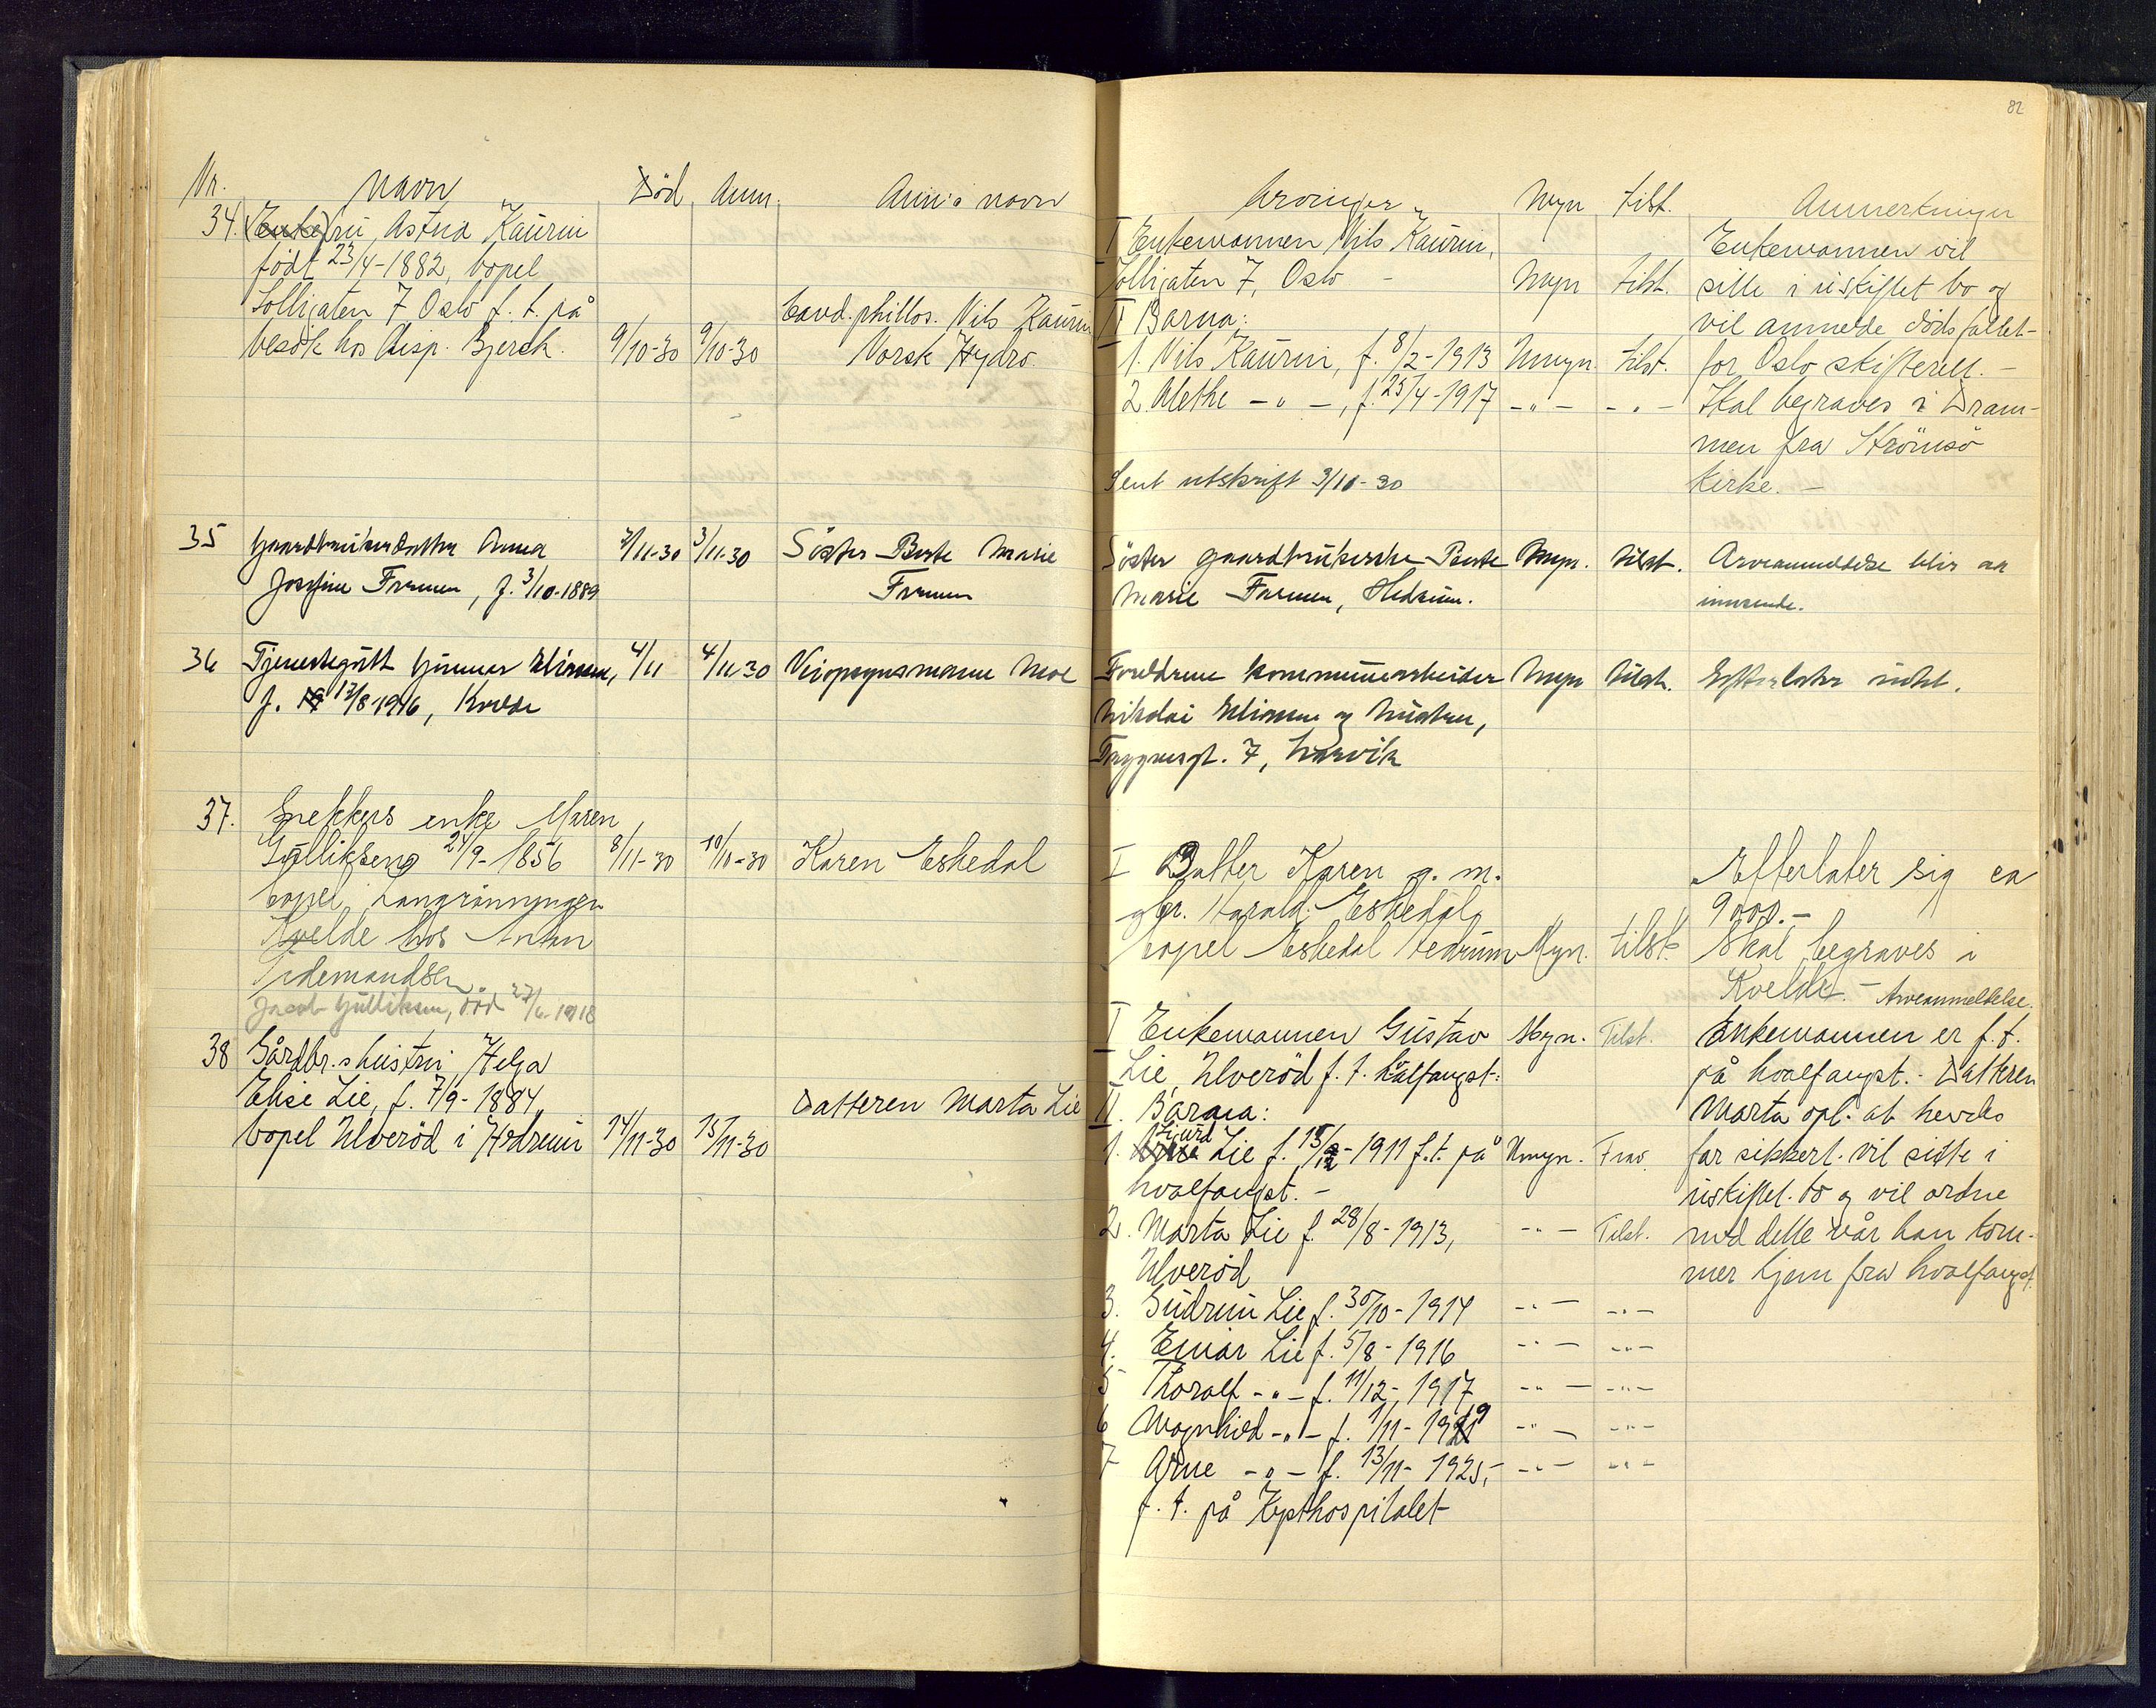 82
Nr. Navn Död Anm. Anm's navn
34. Enke fru Astrid Kaurin
født 23/4-1882, bopel
Solligaten 7 Oslo f. t. på
besök hos disp. Bjerck. 9/10-30 9/10-30
Cand. phillos. Nils Kaurin
Norsk Hydro.
35 Gaardbrukerdatter Anna 2/11-30 3/11-30 Söster Berte Marie
Josefine Farmen, f. 3/10-1889 Farmen
36 Tjenestegutt Gunnar Eliassen, 4/11 4/11-30 Veiopsynsmann Moe
f. 12/8 1916, Kvelde
37. Snekkers enke Maren
Gullikseng 24/9-1856 8/11-30 10/11-30 Karen Eskedal
bopel Langrønningen
Kvelde hos Anton
Tidemandsen.
Jacob Gulliksen, död 27/6 1918
38 Gårdbr.s hustru Helga
Elise Lie, f. 7/9-1884, Datteren Marta Lie
bopel Ulveröd i Hedrum 14/11-30 15/11-30
Arvinger Myn Tilst. Anmerkninger
I Enkemannen Nils Kaurin, Enkemannen vil
Solligaten 7, Oslo - Myn Tilst. sitte i uskiftet bo og
II Barna: vil anmelde dödsfallet
1. Nils Kaurin, f. 8/2-1913 Umyn. Tilst. for Oslo skifterett. -
2. Alethe -"-, f. 25/4-1917 -"- -"- Skal begraves i Dram-
men fra Strömsö
Sent utskrift 3/11-30 kirke. -
Söster gaardbrukerske Berte Myn. tilst. Arveanmeldelse blir aa
Marie Farmen, Hedrum. innsende.
Foreldrene kommunearbeider Myn tilst. Efterlater intet.
Nikolai Eliassen og hustru,
Tryggvesgt. 7, Larvik
I Datter Karen g. m. Efterlater sig ca
gbr. Harald Eskedal, 9000.-
bopel Eskedal Hedrum Myn. tilst. Skal begraves i
Kvelde. - Arveanmeldelse.
I Enkemannen Gustav Myn. Tilst. Enkemannen er f. t.
Lie, Ulveröd f. t. hvalfangst: på hvalfangst. - Datteren
II. Barna: Marta opl. at hendes
1. Sigurd Lie f. 15/12-1911 f.t. på Umyn. Frav. far sikkert vil sitte i
hvalfangst. - uskiftet bo og vil ordne
2. Marta Lie f. 28/8-1913, -"- Tilst. med dette når han kom-
Ulveröd mer hjem fra hvalfangst.
3. Gudrun Lie f. 30/10-1914 -"- -"-
4. Einar Lie f. 5/8-1916 -"- -"-
5 Thoralf -"- f. 11/12-1917 -"- -"-
6 Magnhild -"- f. 1/11-1919 -"- -"-
7 Arne -"- f. 13/11-1925,- -"- -"-
f. t. på Kysthospitalet